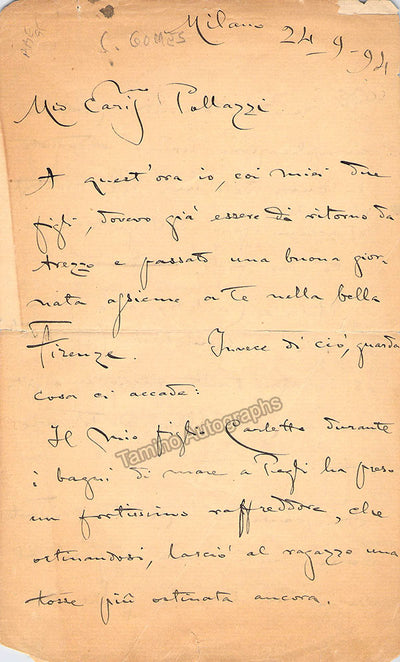 C. GOMES
Milano 24-9-94.
Mio Cariss.mo Pollazzi
A quest'ora io, coi miei due
figli, dovevo già essere di ritorno da
Arezzo e passato una buona gior-
nata assieme a te nella bella
Firenze. Invece di ciò, guarda
cosa ci accade:
Il mio figlio Carletto durante
i bagni di mare a Pegli ha preso
un fortissimo raffreddore, che
ostinandosi, lasciò al ragazzo una
tosse più ostinata ancora.
Tamino Autographs